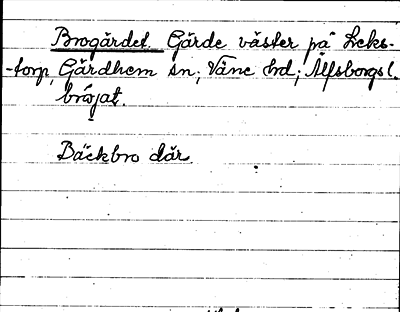 Brogärdet. Gärde väster på Leks-
-torp, Gärdhem sn; Väne hrd; Älfsborgs l.
brojat.
Bäckbro där.